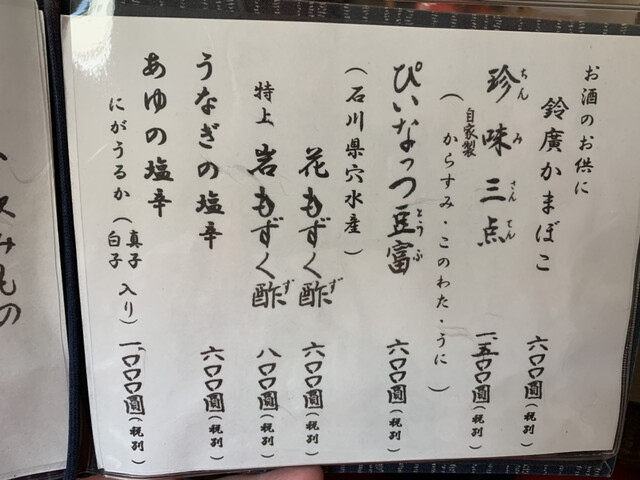 お酒のお供に
鈴廣かまぼこ 六〇〇圓(税別)
珍味三点 一、五〇〇圓(税別)
ちん み さん てん
(自家製 からすみ・このわた・うに)
ぴいなっつ豆富 六〇〇圓(税別)
とう ふ
(石川県穴水産)
花もずく酢 六〇〇圓(税別)
ず
特上 岩もずく酢 八〇〇圓(税別)
ず
うなぎの塩辛 六〇〇圓(税別)
あゆの塩辛
にがうるか(真子 白子 入り) 一、〇〇〇圓(税別)
み
の